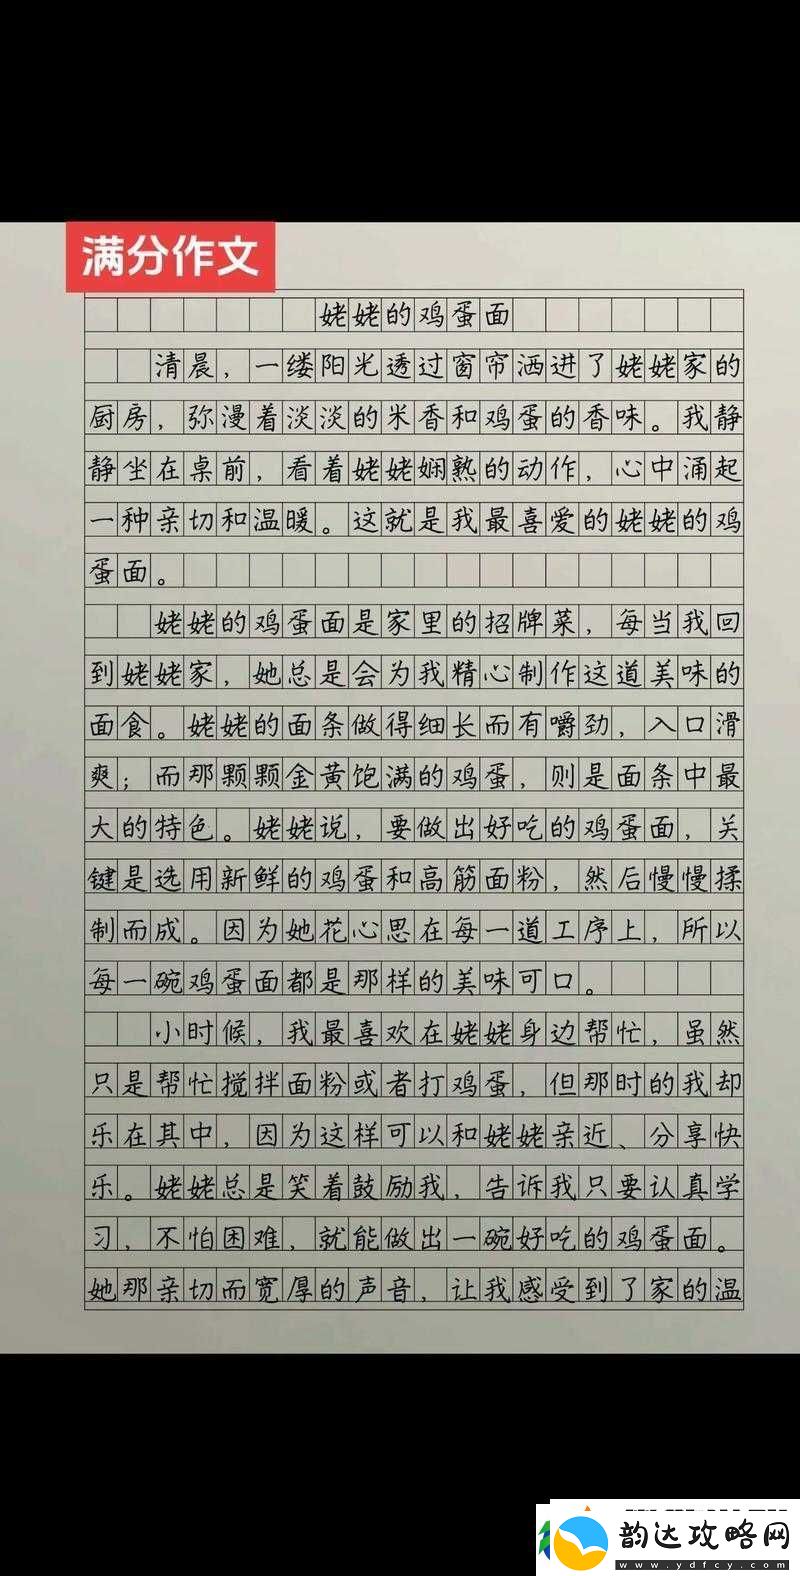 满分作文
姥姥的鸡蛋面
清晨，一缕阳光透过窗帘洒进了姥姥家的
厨房，弥漫着淡淡的米香和鸡蛋的香味。我静
静坐在桌前，看着姥姥娴熟的动作，心中涌起
一种亲切和温暖。这就是我最喜爱的姥姥的鸡
蛋面。
姥姥的鸡蛋面是家里的招牌菜，每当我回
到姥姥家，她总是会为我精心制作这道美味的
面食。姥姥的面条做得细长而有嚼劲，入口滑
爽；而那颗颗金黄饱满的鸡蛋，则是面条中最
大的特色。姥姥说，要做出好吃的鸡蛋面，关
键是选用新鲜的鸡蛋和高筋面粉，然后慢慢揉
制而成。因为她花心思在每一道工序上，所以
每一碗鸡蛋面都是那样的美味可口。
小时候，我最喜欢在姥姥身边帮忙，虽然
只是帮忙搅拌面粉或者打鸡蛋，但那时的我却
乐在其中，因为这样可以和姥姥亲近、分享快
乐。姥姥总是笑着鼓励我，告诉我只要认真学
习，不怕困难，就能做出一碗好吃的鸡蛋面。
她那亲切而宽厚的声音，让我感受到了家的温
韵达攻略网
www.ydfcy.com